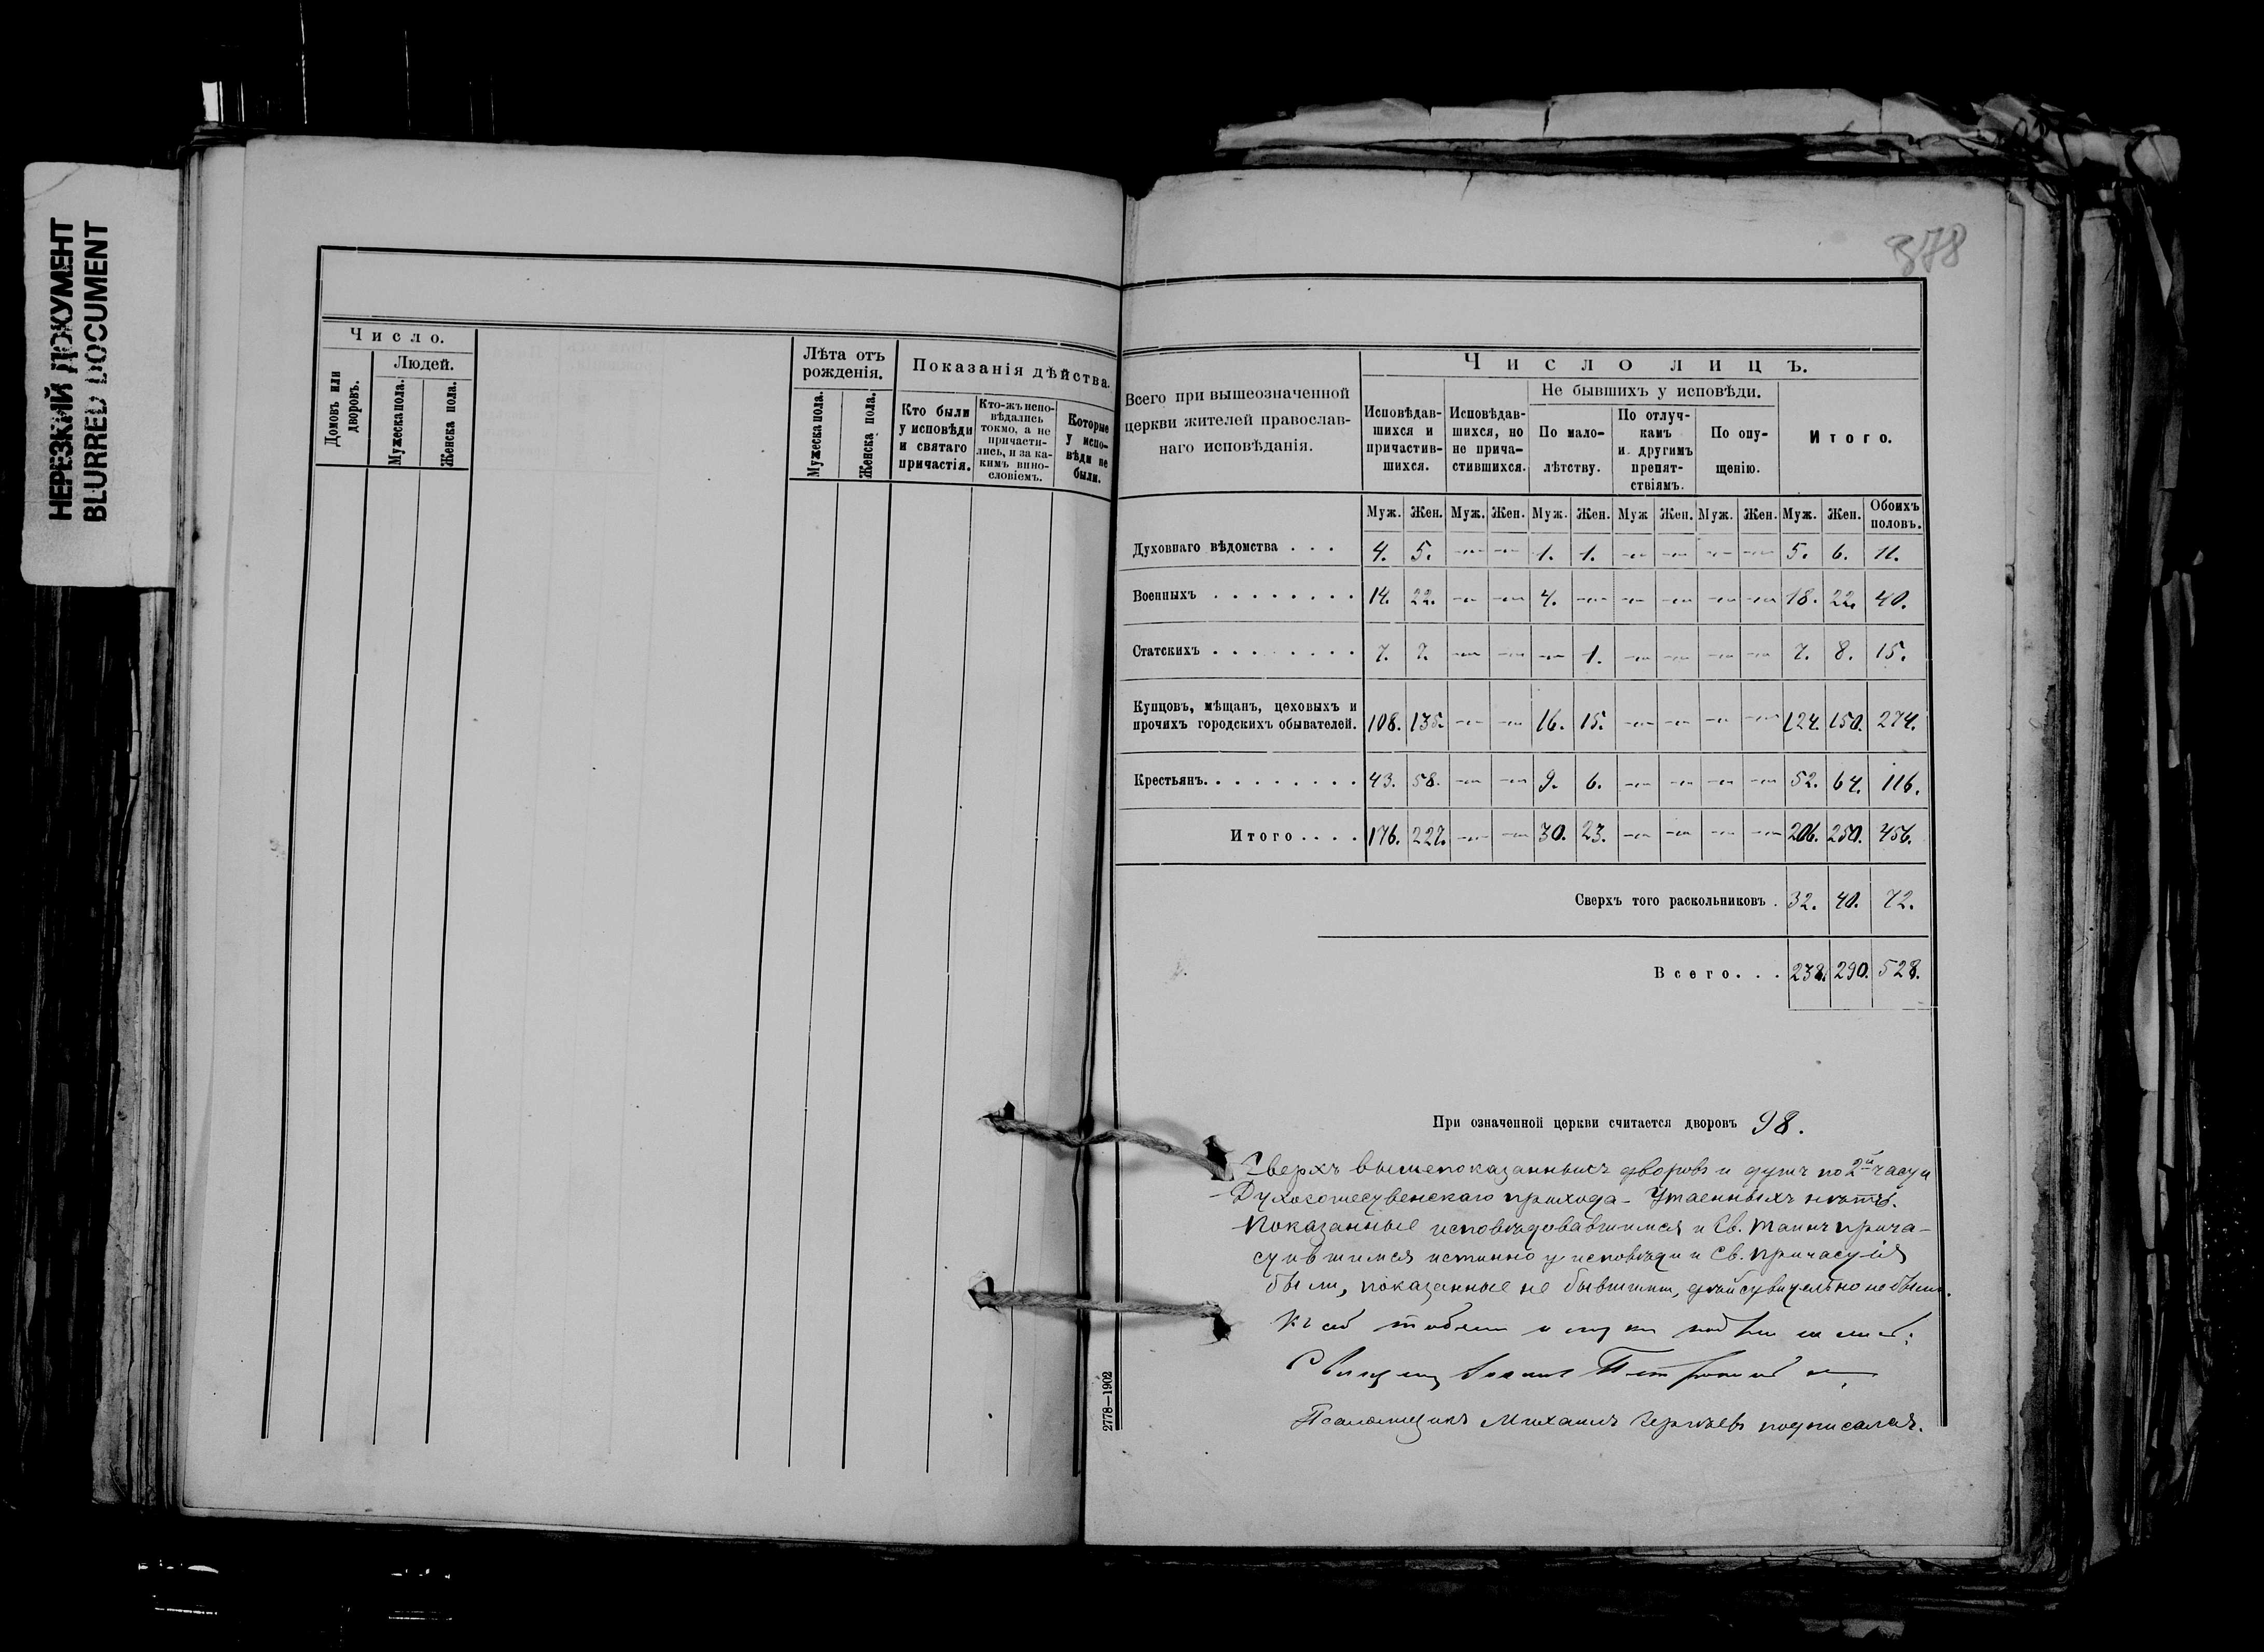 НЕРЕЗКИЙ ДОКУМЕНТ
BLURRED DOCUMENT
378
Число.
Домовъ или дворовъ.
Людей.
Мужеска пола.
Женска пола.
Лѣта отъ рожденія.
Мужеска пола.
Женска пола.
Показанія дѣйства.
Кто были у исповѣди и святаго причастія.
Кто-жъ исповѣдались токмо, а не причастились, и за какимъ винословіемъ.
Которые у исповѣди не были.
Всего при вышеозначенной церкви жителей православнаго исповѣданія.
Число лицъ.
Исповѣдавшихся и причастившихся.
Исповѣдавшихся, но не причастившихся.
Не бывшихъ у исповѣди.
По малолѣтству.
По отлучкамъ и другимъ препятствіямъ.
По опущенію.
Итого.
Муж. Жен. Муж. Жен. Муж. Жен. Муж Жен. Муж. Жен. Муж. Жен. Обоихъ половъ.
Духовнаго вѣдомства . . . 4. 5. — — 1. 1. — — — — 5. 6. 11.
Военныхъ . . . . . . . . 14. 22. — — 4. — — — — — 18. 22. 40.
Статскихъ . . . . . . . . 7. 7. — — — 1. — — — — 7. 8. 15.
Купцовъ, мѣщанъ, цеховыхъ и
прочихъ городскихъ обывателей. 108. 135. — — 16. 15. — — — — 124. 150. 274.
Крестьянъ. . . . . . . . . 43. 58. — — 9. 6. — — — — 52. 64. 116.
Итого . . . . 176. 227. — — 30. 23. — — — — 206. 250. 456.
Сверхъ того раскольниковъ . 32. 40. 72.
Всего. . . 238. 290. 528.
При означенной церкви считается дворовъ 98.
Сверхъ вышепоказанныхъ дворовъ и душъ по 2й части
Духосошественскаго прихода - утаенныхъ нѣтъ.
Показанные исповѣдовавшимися и Св. Таинъ прича-
стившимися истинно у исповѣди и Св. Причастія
были, показанные не бывшими, дѣйствительно не были.
Къ сей
Псаломщикъ Михаилъ подписался.
2778—1902